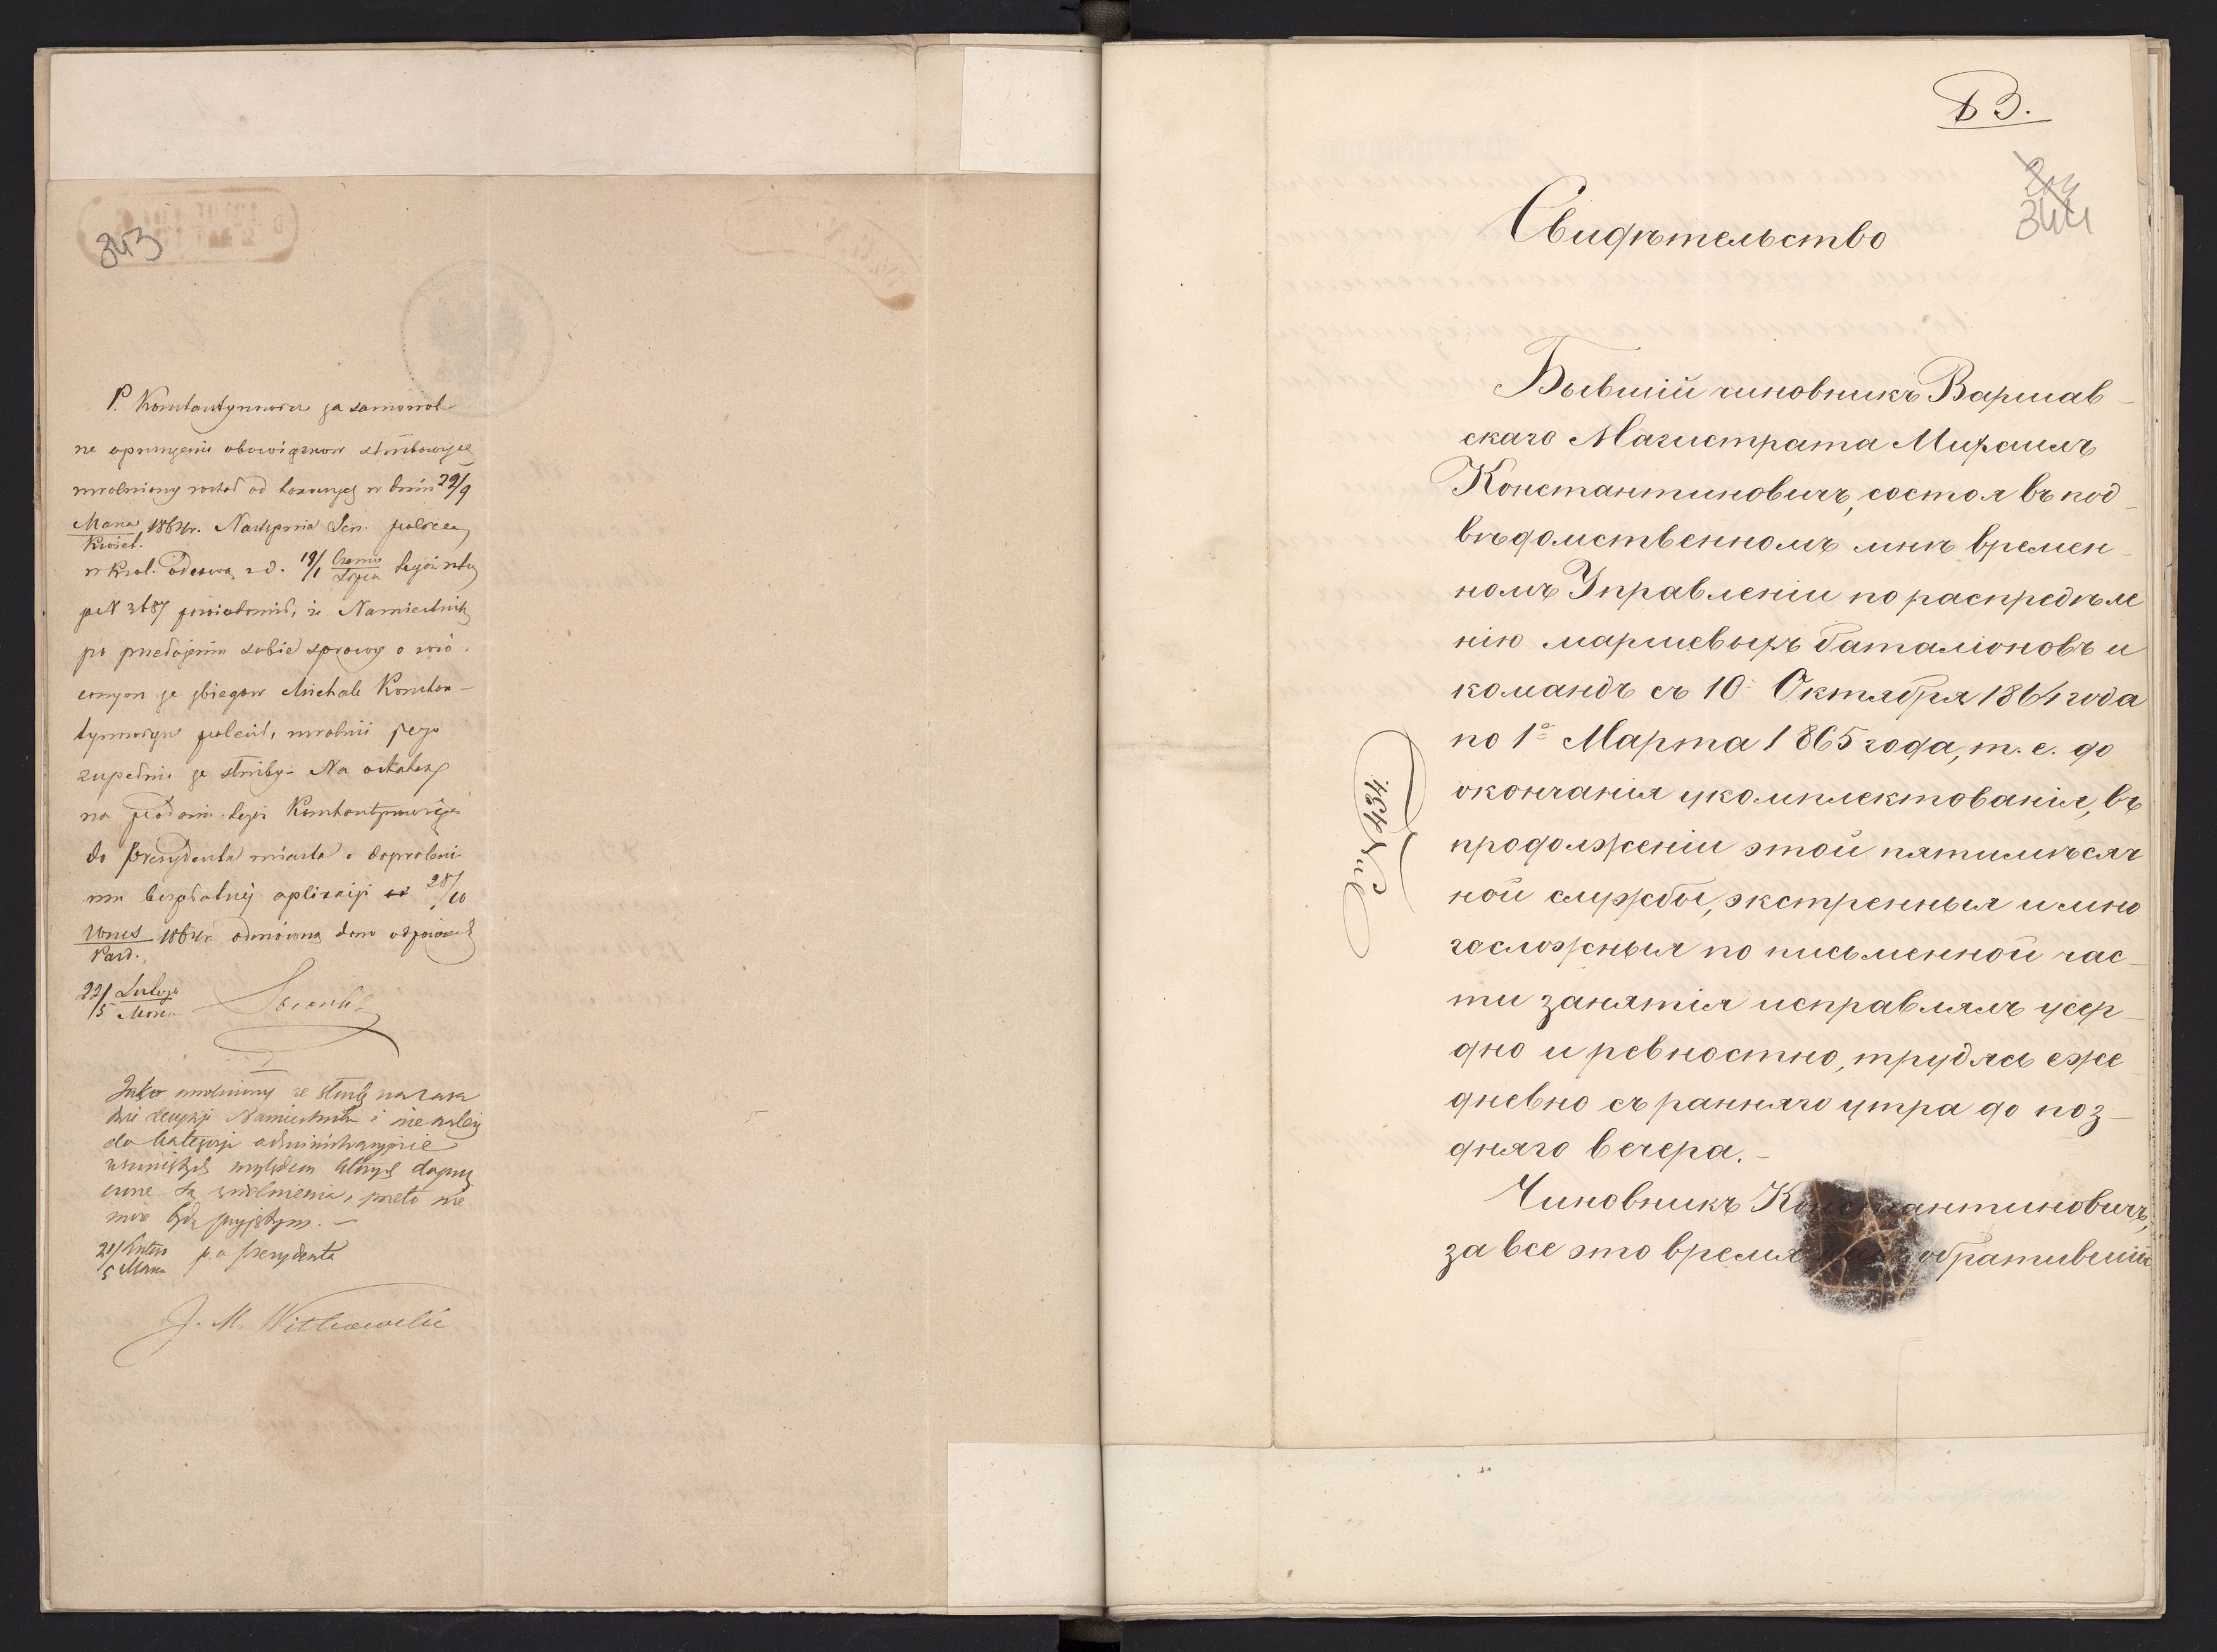 343
P. Konstantynowicz za samowol-
ne opuszczenie obowiązków służbowych
uwolniony został od tornowych w dniu 29/9
Marca/Kwiet. 1864r. Następnie Jen. policm.
w Król. odezwą z d. 19/1 Czerwca/Lipca
№ 3687 powiadomił, że Namiestnik
po przedłożeniu sobie sprawy o wró-
conym ze zbiegów Michale Konstan-
tynowiczu polecił, uwolnić jego
zupełnie ze służby. Na ostatek
na podanie tegoż Konstantynowicza
do Prezydenta miasta o dozwolenie
mu bezpłatnej aplikacji 28/10
Wrześ/Paźd. 1864r. odmówną dano odpowiedź
22/5 Lutego/Marca
Jako uwolniony ze służby na zasa
dzie decyzji Namiestnika i nie należy
do kategorji administracyjnie
usuniętych względem których dopusz
czone są uwolnienia, przeto nie
może być przyjętym. —
21/5 Lutego/Marca p.o. Prezydenta
J. M. Witkowski
B.
344
Свидѣтельство
Бывшій чиновникъ Варшав-
скаго Магистрата Михаилъ
Константиновичъ, состоя въ под-
вѣдомственномъ мнѣ времен-
номъ Управленіи по распредѣле
нію маршевыхъ баталіоновъ и
командъ съ 10: Октября 1864 года
по 1е Марта 1865 года, т. е. до
окончанія укомплектованія, въ
продолженіи этой пятимѣсяч
ной службы, экстренныя и мно
госложныя по письменной час-
ти занятія исправлялъ усер-
дно и ревностно, трудясь еже
дневно съ ранняго утра до поз-
дняго вечера. -
Чиновникъ Константиновичъ,
за все это время обратившій
№ 434.